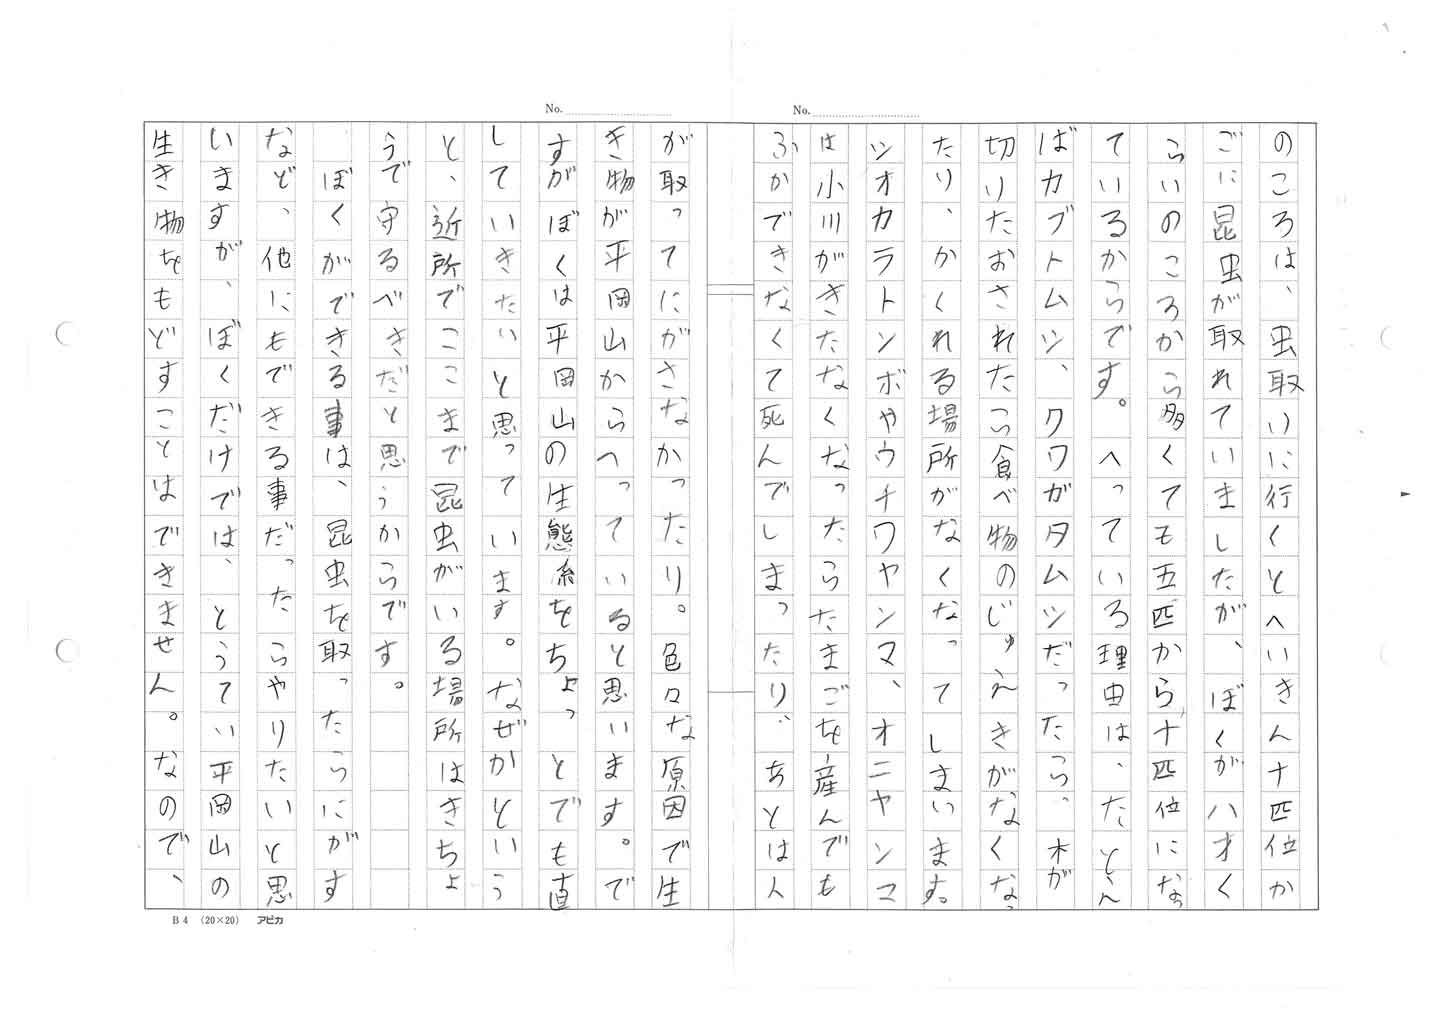 No.
No.
のころは、虫取りに行くとへいきん十匹位か
ごに昆虫が取れていましたが、ぼくが八才く
らいのころから多くても五匹から十匹位になっ
ているからです。へっている理由は、たとえ
ばカブトムシ、クワガタムシだったら、木が
切りたおされたら食べ物のじゅえきがなくなっ
たり、かくれる場所がなくなってしまいます。
シオカラトンボやウチワヤンマ、オニヤンマ
は小川がきたなくなったらたまごを産んでも
ふかできなくて死んでしまったり、あとは人
が取ってにがさなかったり。色々な原因で生
き物が平岡山からへっていると思います。で
すがぼくは平岡山の生態系をちょっとでも直
していきたいと思っています。なぜかという
と、近所でここまで昆虫がいる場所はきちょ
うで守るべきだと思うからです。
ぼくができる事は、昆虫を取ったらにがす
など、他にもできる事だったらやりたいと思
いますが、ぼくだけでは、とうてい平岡山の
生き物をもどすことはできません。なので、
B4 (20×20) アピカ